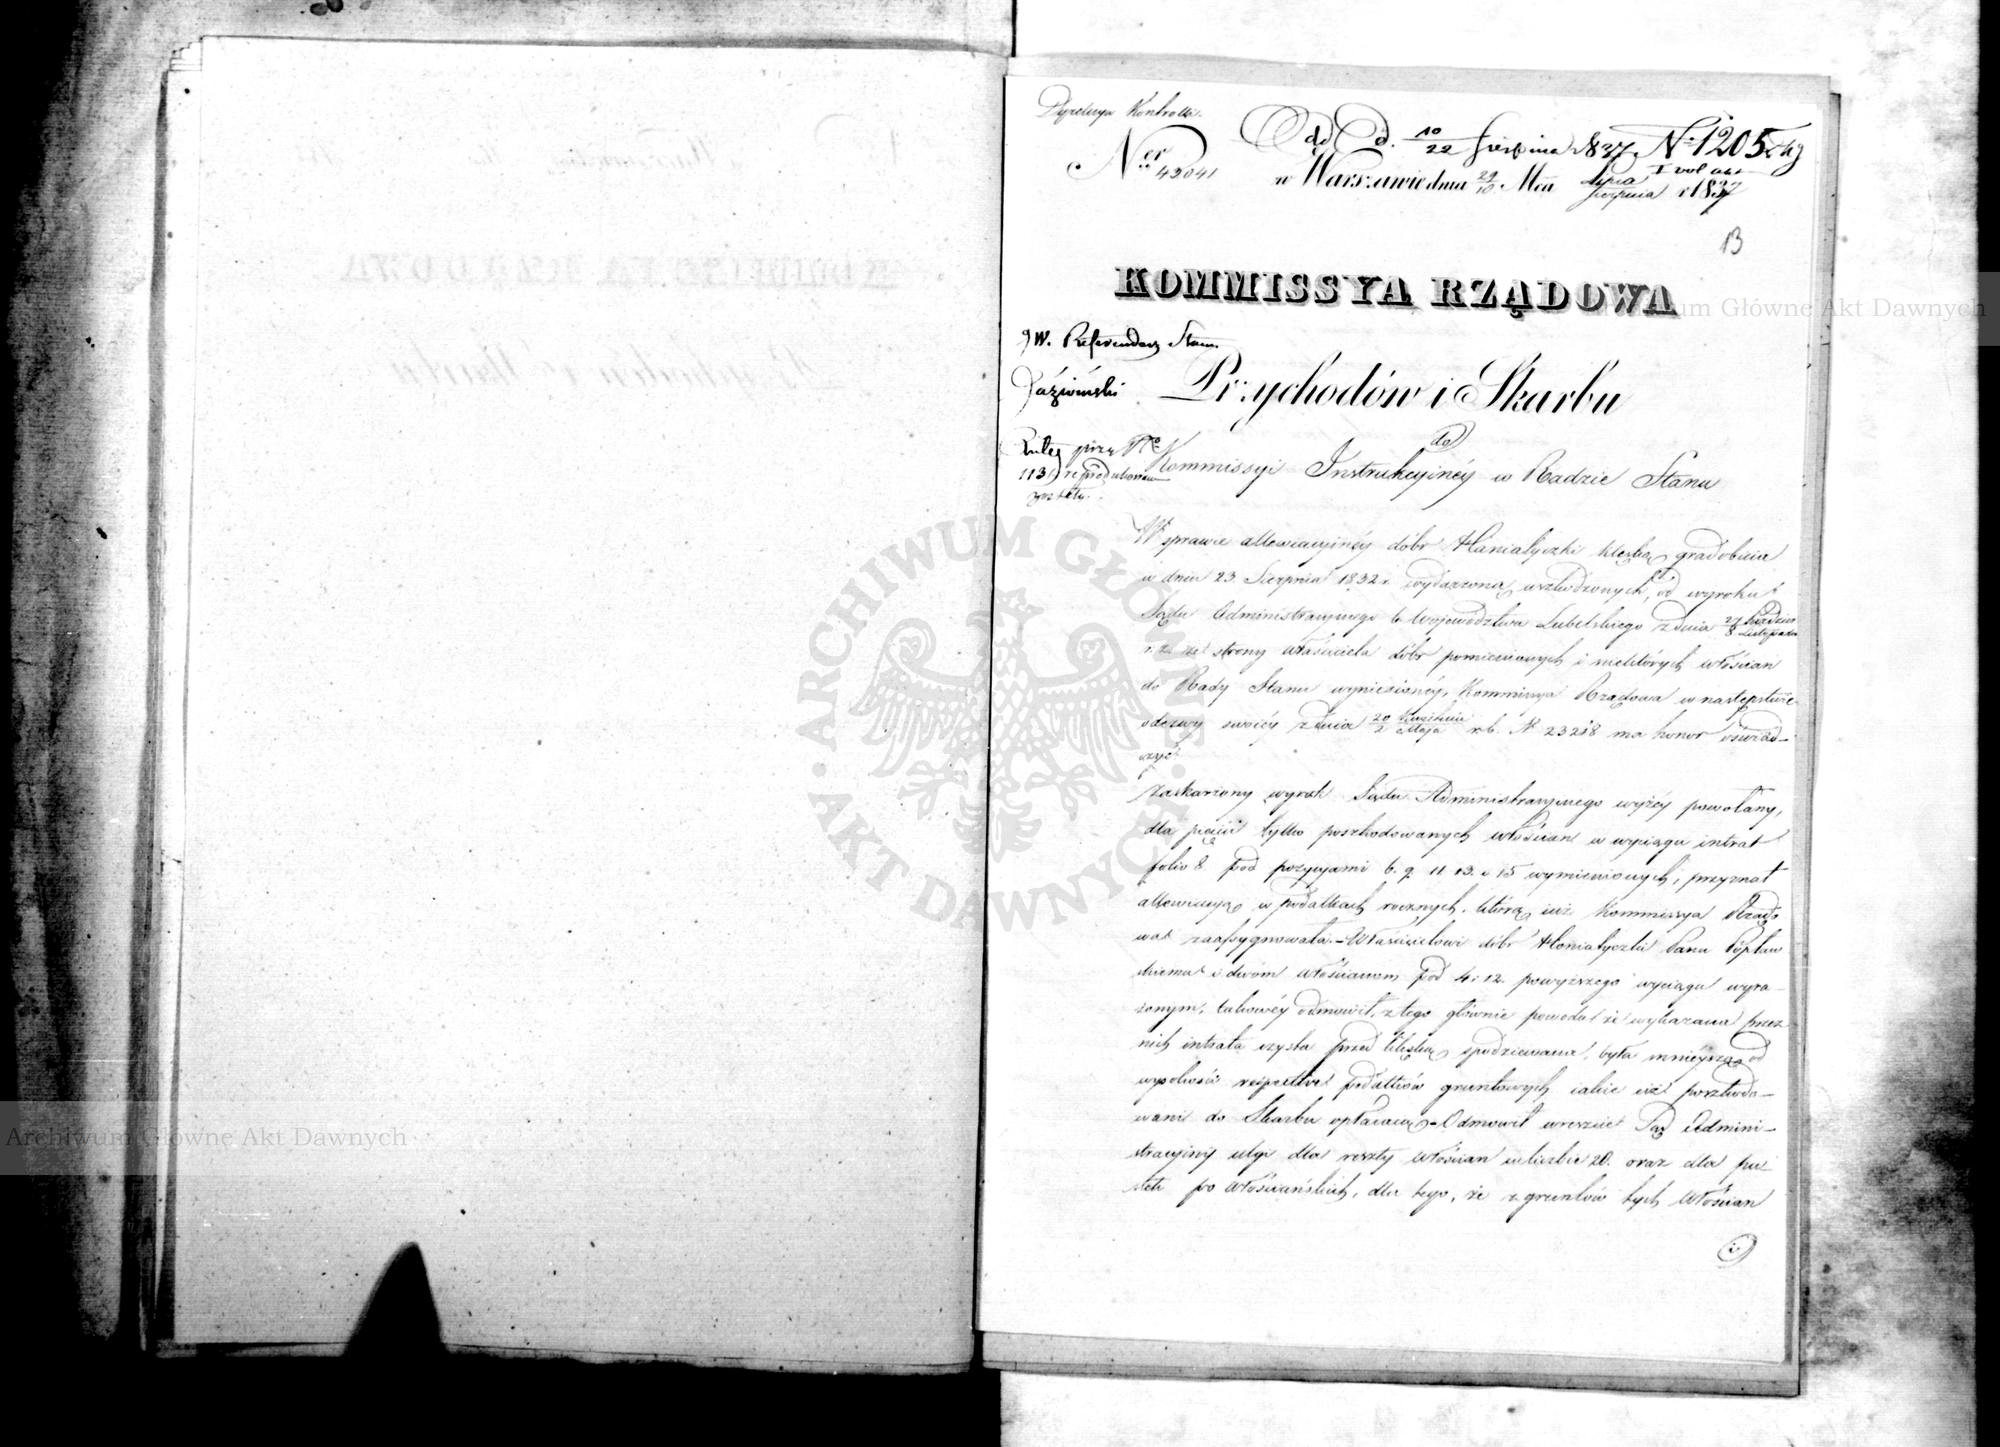 Dyrekcya Kontrolli.
Ner 43041
Od d. 10/22 Sierpnia 1837 N: 1205
I vol akt
w Warszawie dnia 29/10 Mca Lipca/Sierpnia r 1837
13
KOMMISSYA RZĄDOWA
JW. Referendarz Stanu
Przychodów i Skarbu
do
Kommissyi Instrukcyinéy w Radzie Stanu
W sprawie allewiacyinéy dóbr Haniatyczki klęską gradobicia
w dniu 23 Sierpnia 1832 r. wydarzoną uszkodzonych, od wyroku
Sądu Administracyinego b. Województwa Lubelskiego z dnia 27/8 Paździer/Listopada
r. z. ze strony właściciela dóbr pomienionych i niektórych włościan
do Rady Stanu wyniesionéy, Kommissya Rządowa w następstwie
odezwy swoiéy z dnia 20/2 Kwietnia/Maja r.b. N 23218 ma honor oświad-
czyć
Zaskarżony wyrok Sądu Administracyinego wyżéy powołany,
dla pięciu tylko poszkodowanych włościan w wyciągu intrat
folio 8 pod pozycyami 6. 9. 11. 13. i 15 wymienionych, przyznał
allewiacyą w podatkach rocznych, którą iuż Kommissya Rządo
wa zaassygnowała. - Właścicielowi dóbr Honiatyczki Panu Popław
skiemu i dwóm włościanom pod 4 i 12. powyższego wyciągu wyra-
żonym, takowéy odmówił, z tego głównie powodu że wykazana przez
nich intrata czysta przed klęską spodziewana, była mnieyszą od
wysokości respective podatków gruntowych iakie iuż poszkodo-
wani do Skarbu opłacaią - Odmówił wreszcie Sąd Admini-
stracyiny ulgi dla reszty włościan w liczbie 20. oraz dla pu
stek po włościańskich, dla tego, że z gruntów tych włościan
ARCHIWUM GŁÓWNE AKT DAWNYCH
Archiwum Główne Akt Dawnych
Archiwum Główne Akt Dawnych